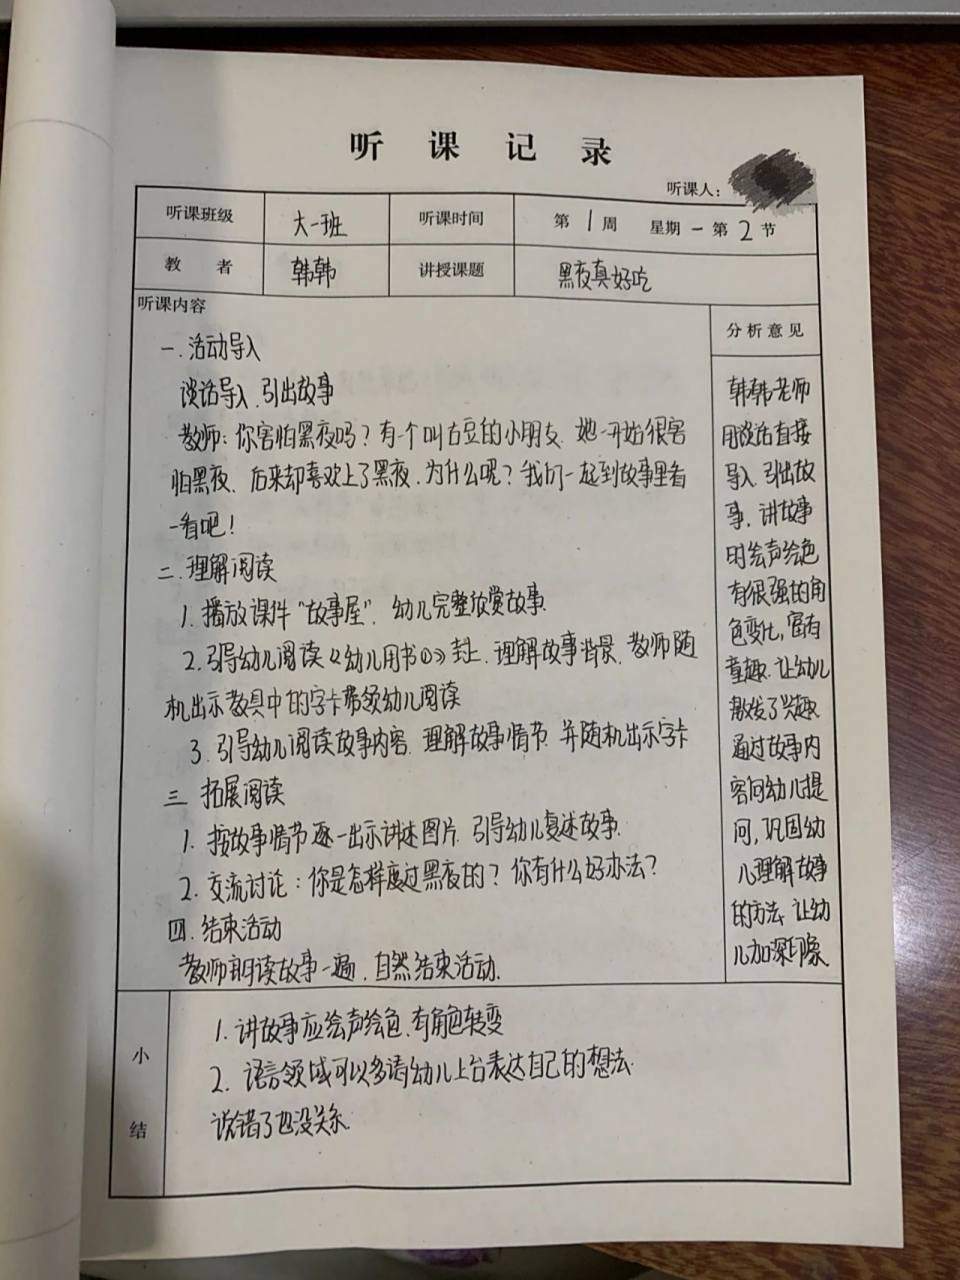 听课记录
听课人：
听课班级 大一班 听课时间 第1周 星期一第2节
教者 韩韩 讲授课题 黑夜真好吃
听课内容
一.活动导入
谈话导入.引出故事
教师：你害怕黑夜吗？有一个叫古豆的小朋友.她一开始很害
怕黑夜、后来却喜欢上了黑夜.为什么呢？我们一起到故事里看
一看吧！
二.理解阅读
1.播放课件“故事屋”.幼儿完整欣赏故事.
2.引导幼儿阅读《幼儿用书①》封上.理解故事背景.教师随
机出示教具中的字卡带领幼儿阅读
3.引导幼儿阅读故事内容.理解故事情节.并随机出示字卡
三 拓展阅读
1.按故事情节逐一出示讲述图片.引导幼儿复述故事.
2.交流讨论：你是怎样度过黑夜的？你有什么好办法？
四.结束活动
教师朗读故事一遍.自然结束活动.
分析意见
韩韩老师
用谈话直接
导入.引出故
事.讲故事
时绘声绘色
有很强的角
色变化,富有
童趣.让幼儿
激发了兴趣
通过故事内
容问幼儿提
问,巩固幼
儿理解故事
的方法.让幼
儿加深印象
小结
1.讲故事应绘声绘色.有角色转变
2.语言领域可以多请幼儿上台表达自己的想法.
说错了也没关系.